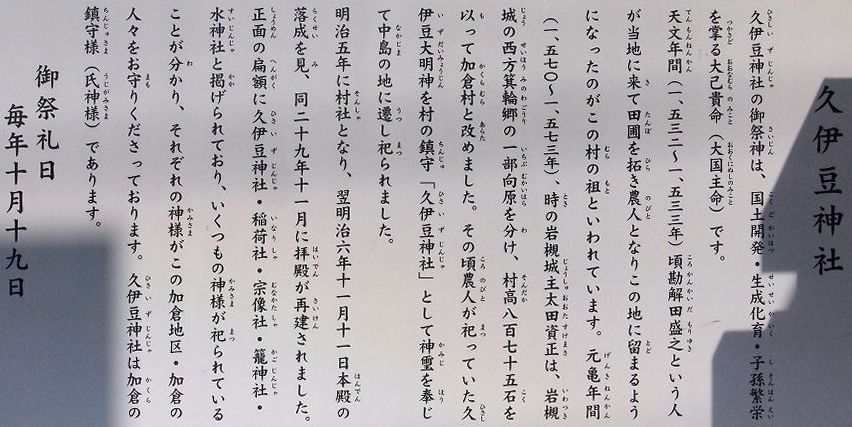 久伊豆神社
久伊豆神社の御祭神は、国土開発・生成化育・子孫繁栄
を掌る大己貴命（大国主命）です。
天文年間（一、五三二～一、五三三年）頃勘解田盛之という人
が当地に来て田圃を拓き農人となりこの地に留まるよう
になったのがこの村の祖といわれています。元亀年間
（一、五七〇～一、五七三年）、時の岩槻城主太田資正は、岩槻
城の西方箕輪郷の一部向原を分け、村高八百七十五石を
以って加倉村と改めました。その頃農人が祀っていた久
伊豆大明神を村の鎮守「久伊豆神社」として神霊を奉じ
て中島の地に遷し祀られました。
明治五年に村社となり、翌明治六年十一月十一日本殿の
落成を見、同二十九年十一月に拝殿が再建されました。
正面の扁額に久伊豆神社・稲荷社・宗像社・籠神社・
水神社と掲げられており、いくつもの神様が祀られている
ことが分かり、それぞれの神様がこの加倉地区・加倉の
人々をお守りくださっております。久伊豆神社は加倉の
鎮守様（氏神様）であります。
御祭礼日
毎年十月十九日